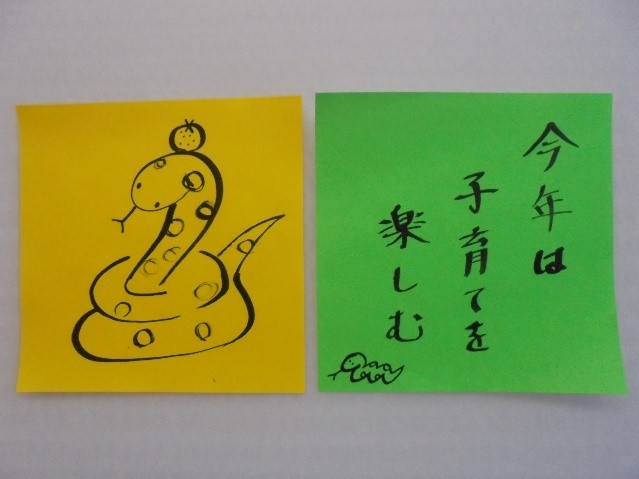 今年は
子育てを
楽しむ